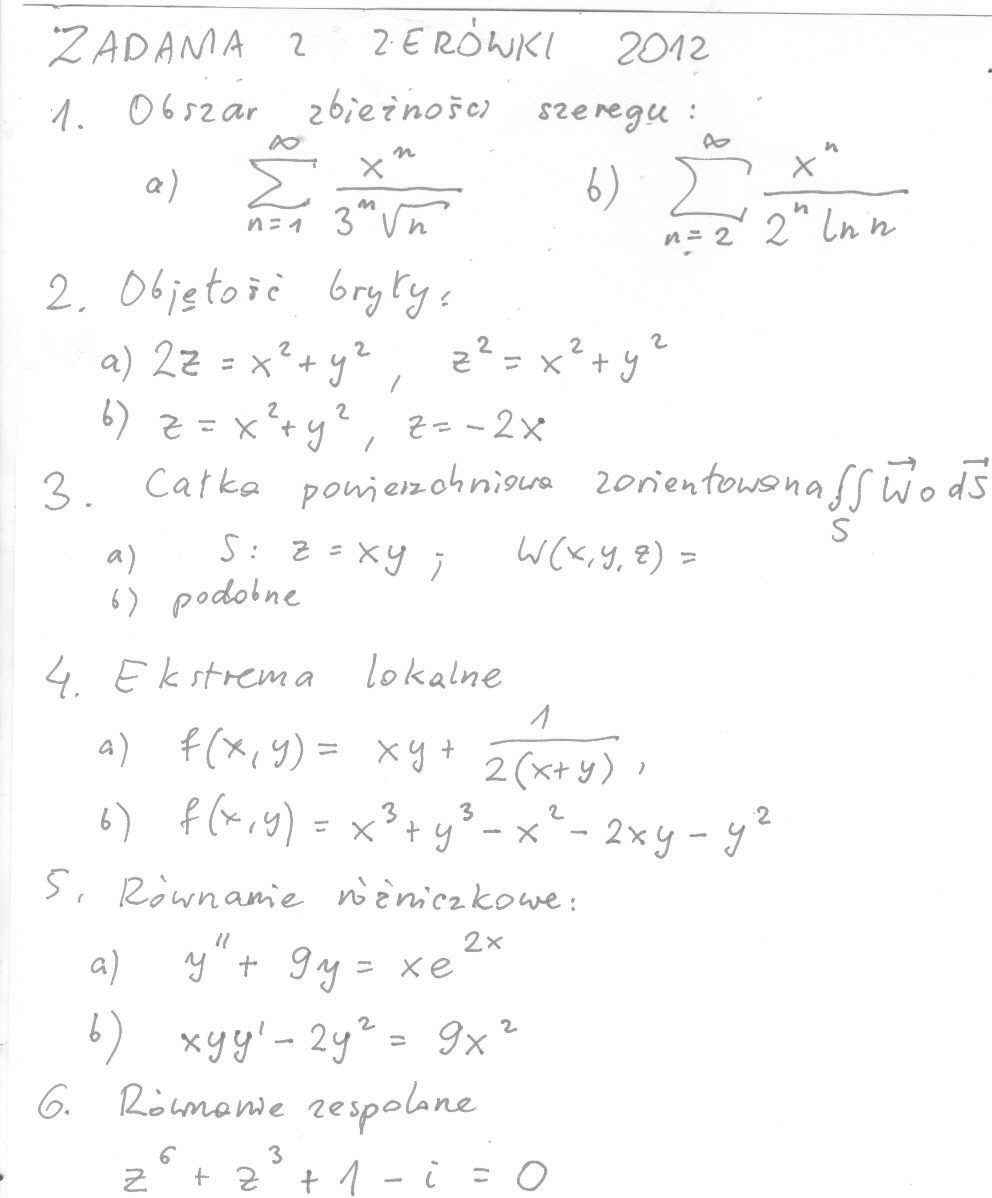 ZADANIA Z ZERÓWKI 2012
1. Obszar zbieżności szeregu:
a) \sum_{n=1}^{\infty} \frac{x^n}{3^n \sqrt{n}} b) \sum_{n=2}^{\infty} \frac{x^n}{2^n \ln n}
2. Objętość bryły:
a) 2z = x² + y², z² = x² + y²
b) z = x² + y², z = -2x
3. Całka powierzchniowa zorientowana \iint_S \vec{W} \circ \vec{dS}
a) S: z = xy; W(x,y,z) =
b) podobne
4. Ekstrema lokalne
a) f(x,y) = xy + \frac{1}{2(x+y)},
b) f(x,y) = x³ + y³ - x² - 2xy - y²
5. Równanie różniczkowe:
a) y'' + 9y = xe^{2x}
b) xyy' - 2y² = 9x²
6. Równanie zespolone
z⁶ + z³ + 1 - i = 0